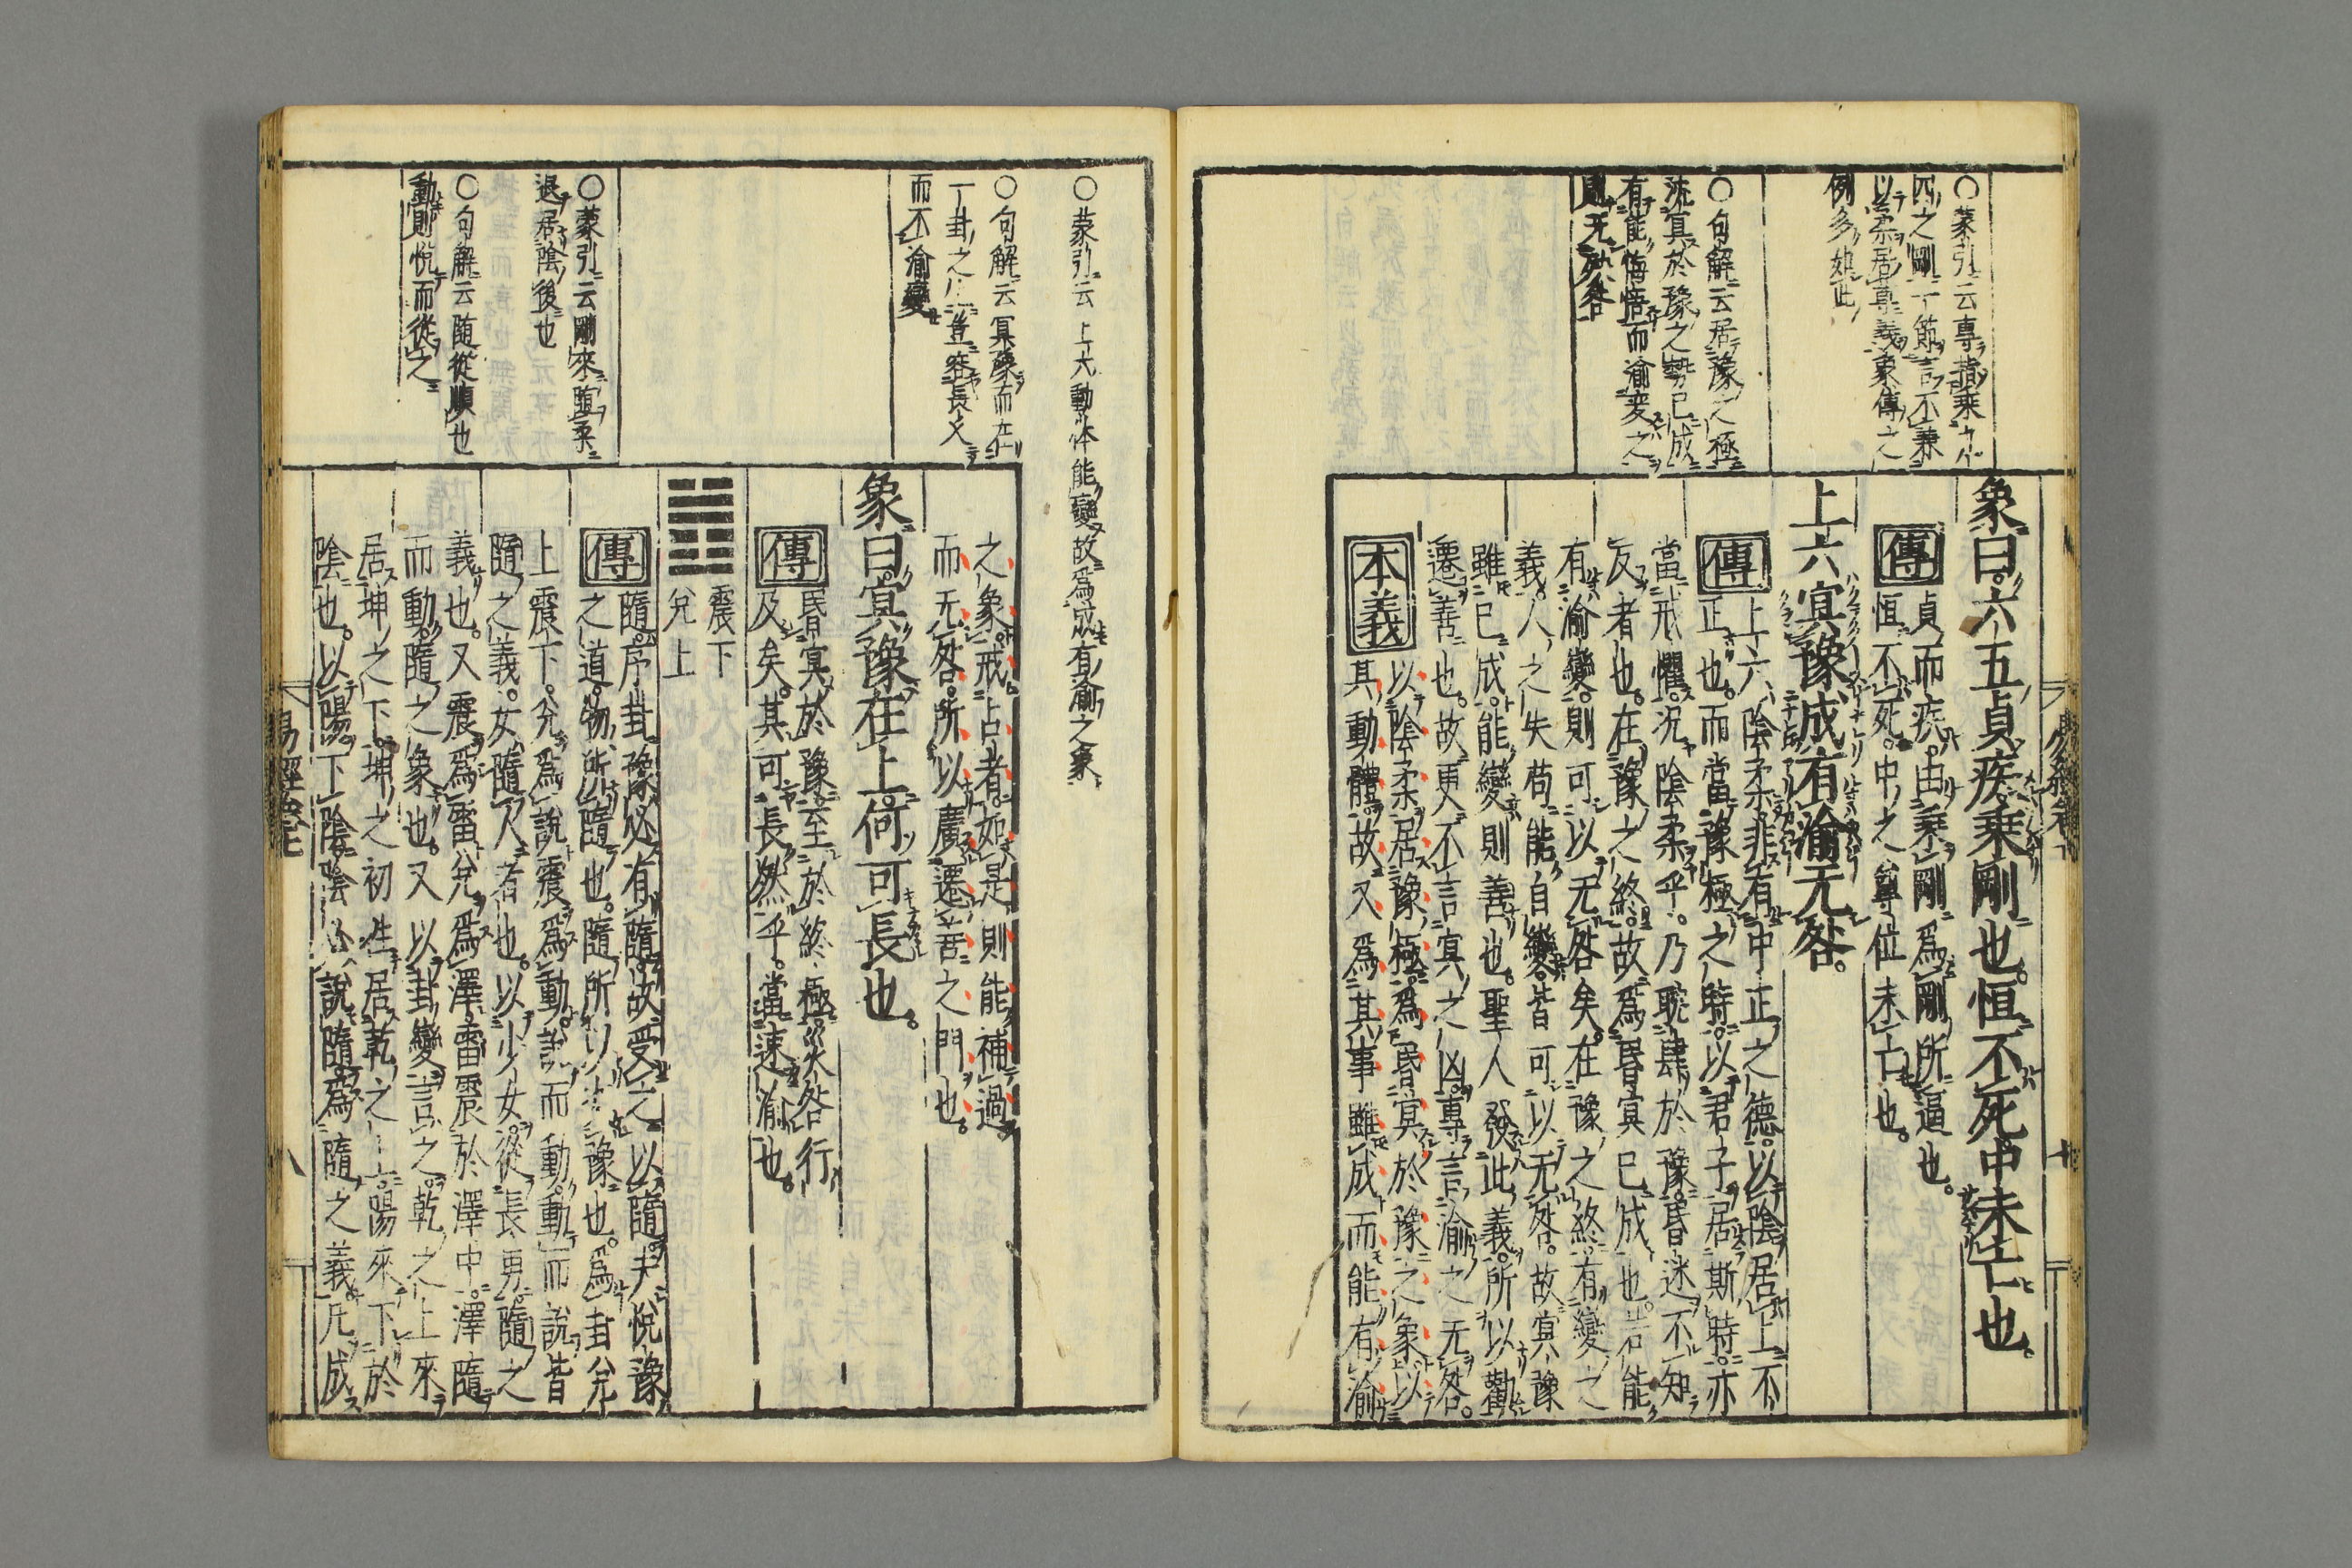 〇蒙引云專指乘九
四之剛一節言不兼
以柔居尊義象傳之
例多如此
〇句解云居豫之極
沈冥於豫之勢已成
有能悔悟而渝変之
則无咎
象曰六五貞疾乘剛也。恒不死中未亡也。
傳 貞而疾。由乘剛爲剛所逼也。
恒不死。中之尊位未亡也。
上六冥豫成有渝无咎。
傳 上六陰柔非有中正之德。以陰居上不
正也。而當豫極之時。以君子居斯時。亦
當戒懼。況陰柔乎。乃耽肆於豫。昏迷不知
反者也。在豫之終。故爲昏冥已成也。若能
有渝變。則可以无咎矣。在豫之終。有變之
義。人之失苟能自變。皆可以无咎。故冥豫
雖已成。能變則善也。聖人發此義。所以勸
遷善也。故更不言冥之凶。專言渝之无咎。
本義 以陰柔居豫極。爲昏冥於豫之象。以
其動體。故又爲其事雖成而能有渝
〇蒙引云上六動体能變故爲成有渝之象
〇句解云冥豫而在
一卦之上豈容長久
而不渝變
〇蒙引云剛來隨柔
退居陰後也
〇句解云随從順也
動則悅而從之
之象。戒占者。如是則能補過
而无咎。所以廣遷善之門也。
象曰。冥豫在上何可長也。
傳 昏冥於豫。至於終極。災咎行
及矣。其可長然乎。當速渝也。
震下
兌上
傳 隨。序卦豫必有隨。故受之以隨。夫悅豫
之道。物所隨也。隨所以次豫也。爲卦兌
上震下。兌爲說震爲動。說而動。動而說皆
隨之義。女隨人者也。以少女從長男。隨之
義也。又震爲雷兌爲澤。雷震於澤中。澤隨
而動。隨之象也。又以卦變言之。乾之上來
居坤之下。坤之初往居乾之上。陽來下於
陰也。以陽下陰陰必說隨。爲隨之義。凡成
易經卷七